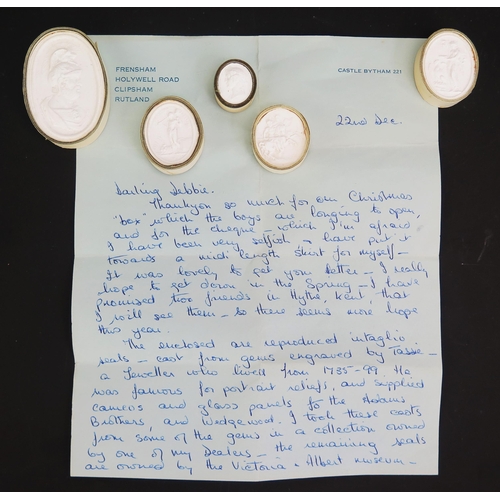 FRENSHAM
HOLYWELL ROAD
CLIPSHAM
RUTLAND
CASTLE BYTHAM 221
22nd Dec.
Darling Debbie.
Thankyou so much for our Christmas
"box" which the boys are longing to open,
and for the cheque - which I'm afraid
I have been very selfish & have put it
towards a midi length skirt for myself -
It was lovely to get your letter - I really
hope to get down in the Spring - I have
promised two friends in Hythe, Kent, that
I will see them - so there seems more hope
this year.
The enclosed are reproduced intaglio
seals - cast from gems engraved by Tassie -
a Jeweller who lived from 1735-99. He
was famous for portrait reliefs, and supplied
cameos and glass panels to the Adams
Brothers, and Wedgewood. I took these casts
from some of the gems in a collection owned
by one of my Dealers - the remaining seals
are owned by the Victoria & Albert museum -